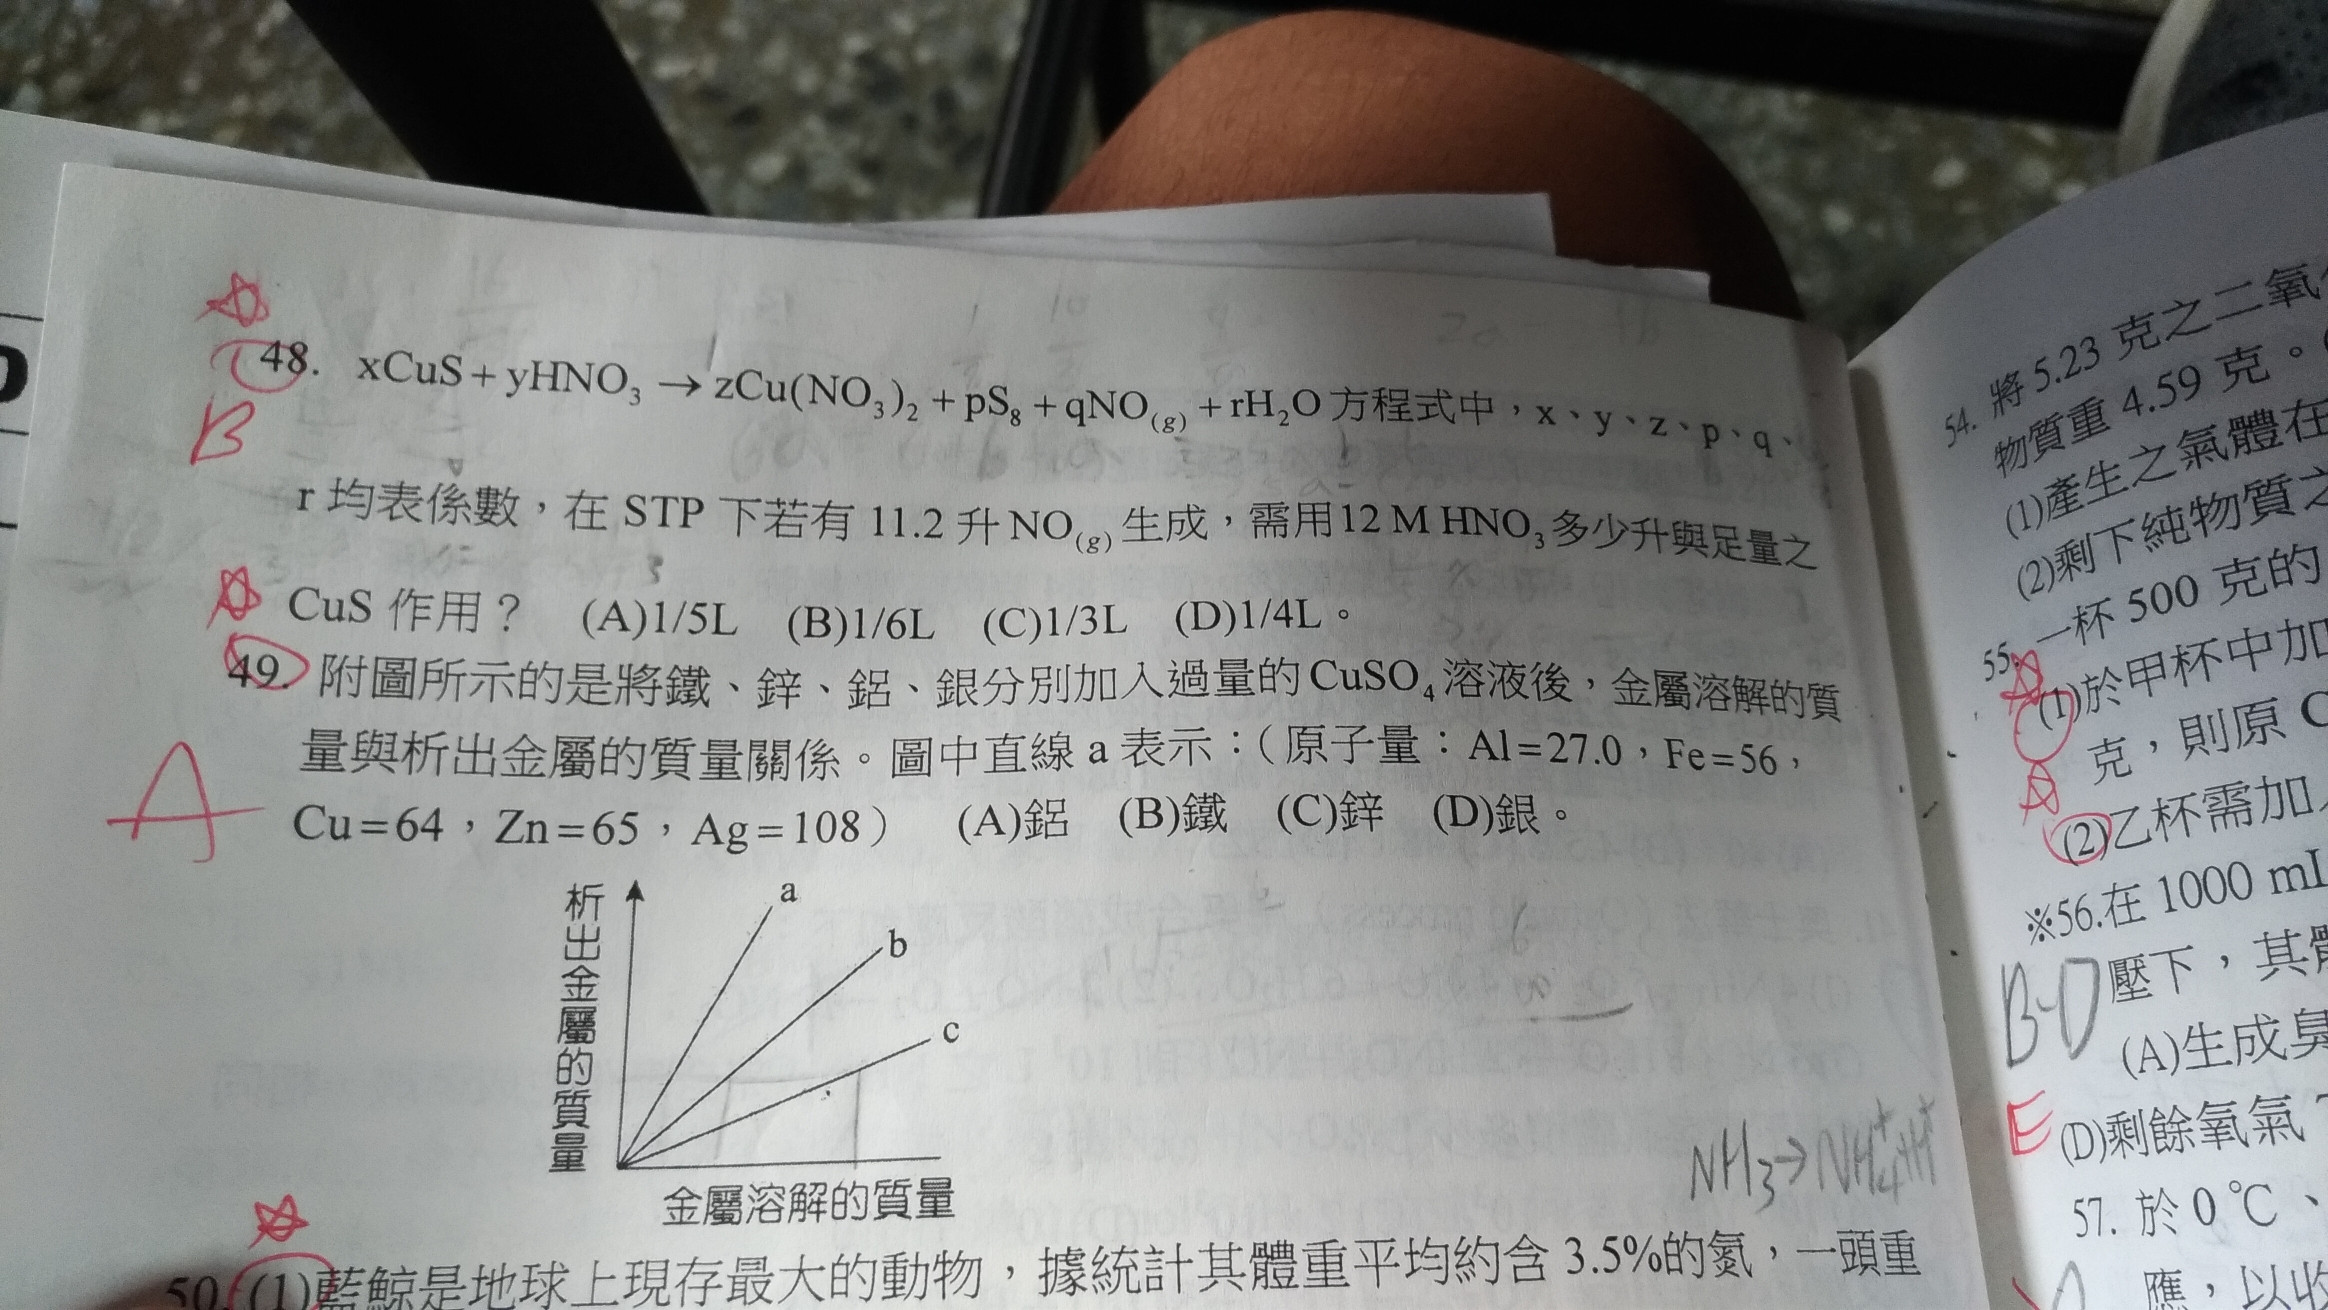 48. xCuS+yHNO₃→zCu(NO₃)₂+pS₈+qNO(g)+rH₂O方程式中，x、y、z、p、q、
B
r 均表係數，在 STP 下若有 11.2 升 NO(g) 生成，需用12 M HNO₃多少升與足量之
CuS 作用？ (A)1/5L (B)1/6L (C)1/3L (D)1/4L。
49. 附圖所示的是將鐵、鋅、鋁、銀分別加入過量的CuSO₄溶液後，金屬溶解的質
量與析出金屬的質量關係。圖中直線 a 表示：（原子量：Al=27.0，Fe=56，
A
Cu=64，Zn=65，Ag=108） (A)鋁 (B)鐵 (C)鋅 (D)銀。
析出金屬的質量
a
b
c
金屬溶解的質量
NH₃→NH₄⁺+H⁺
50. (1)藍鯨是地球上現存最大的動物，據統計其體重平均約含 3.5%的氮，一頭重
54. 將 5.23 克之二氧
物質重 4.59 克。
(1)產生之氣體在
(2)剩下純物質之
55. 一杯 500 克的
(1)於甲杯中加
克，則原 C
(2)乙杯需加
※56.在 1000 mL
B D
壓下，其
(A)生成臭
E
(D)剩餘氧氣
57. 於 0 ℃、
應，以收